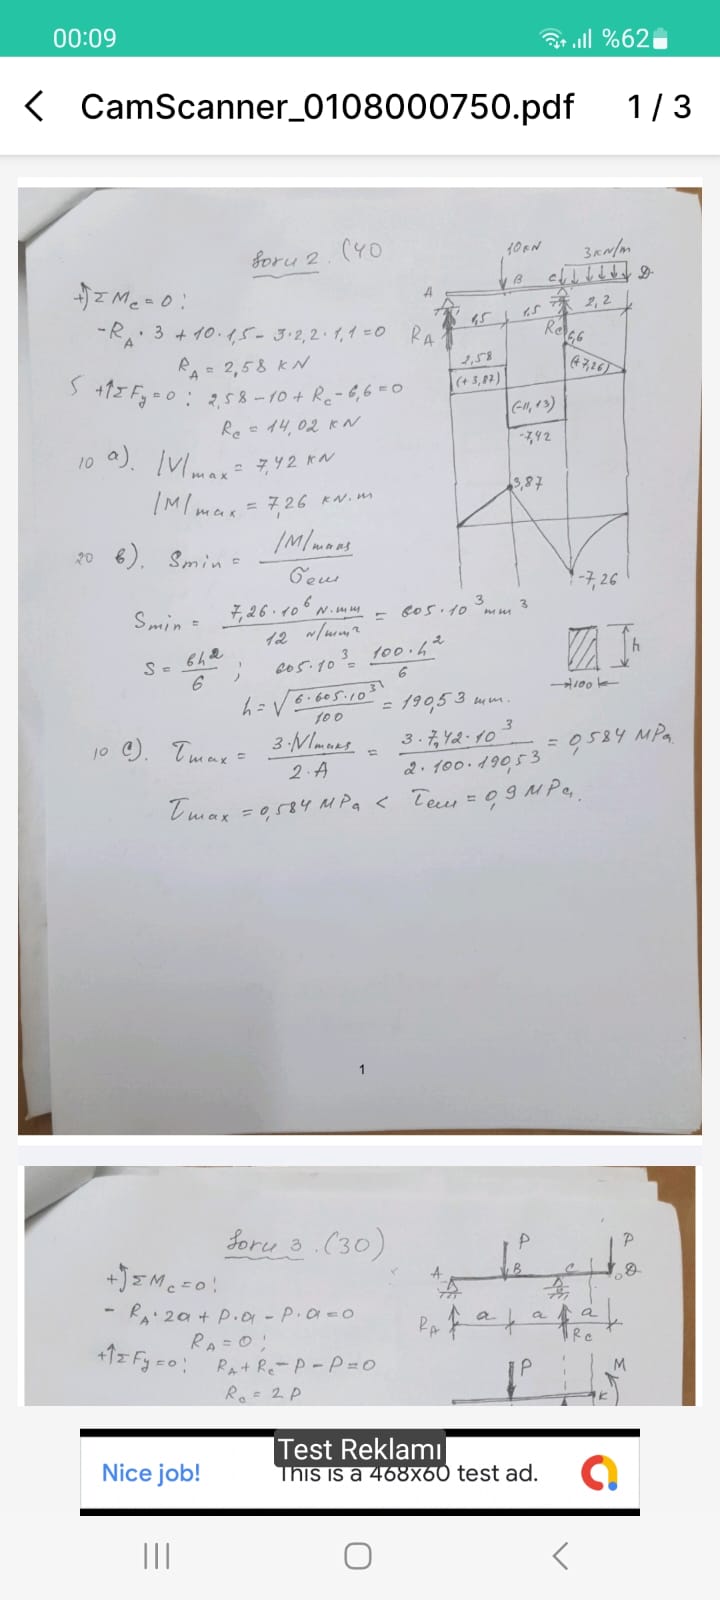 00:09
%62
CamScanner_0108000750.pdf 1 / 3
Soru 2. (40
+ΣMc=0:
-RA·3+10·1,5-3·2,2·1,1=0
RA = 2,58 kN
5 +↑ΣFy=0: 2,58-10+Rc-6,6=0
Rc = 14,02 kN
10 a). |V|max = 7,42 kN
|M|max = 7,26 kN·m
20 b). Smin = |M|max / σem
Smin = 7,26·10^6 N·mm / 12 N/mm² = 605·10³ mm³
S = bh²/6 ; 605·10³ = 100·h²/6
h = √(6·605·10³/100) = 190,53 mm.
10 c). τmax = 3·|V|max / 2·A = 3·7,42·10³ / 2·100·190,53 = 0,584 MPa
τmax = 0,584 MPa < τem = 0,9 MPa.
10kN
3kN/m
A B C D
1,5 1,5 2,2
RA Rc
2,58 6,6
(+3,87) (+7,26)
(-11,13)
-7,42
3,87
-7,26
h
100
1
Soru 3. (30)
+ΣMc=0:
- RA·2a + P·a - P·a = 0
RA = 0;
+↑ΣFy=0: RA+Rc-P-P=0
Rc = 2P
P P
A B C D
RA a a a
Rc
P M
K
Test Reklamı
Nice job! This is a 468x60 test ad.